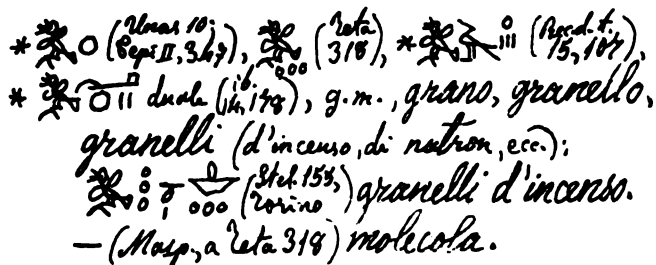 * (Unas 10; Pepi II, 347), (Teta 318), * (Rec. d. t. 15, 107),
* duale (ib. 14, 178), g. m., grano, granello,
granelli (d'incenso, di natron, ecc.);
(Stel. 153, Torino) granelli d'incenso.
— (Masp., a Teta 318) molecola.